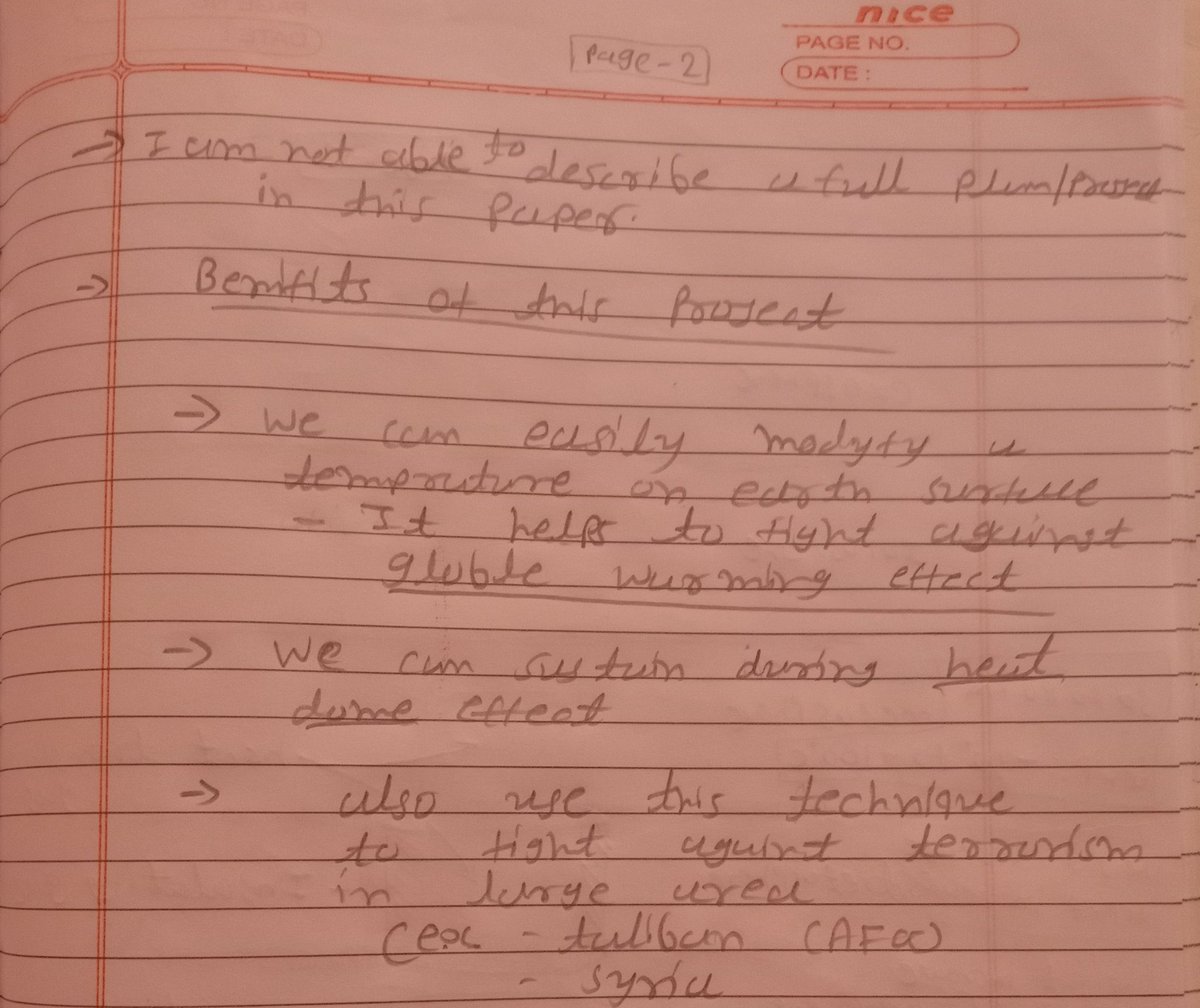 nice
PAGE NO.
DATE :
Page-2
→ I am not able to describe a full plan/
in this paper.
→ Benifits of this Project
→ We can easily modyfy a
temprature on earth surface
- It helps to fight against
globle warming effect
→ We can sustain during heat
dome effect
→ also use this technique
to fight against terrorism
in large area
(ex - taliban (AFG)
- syria